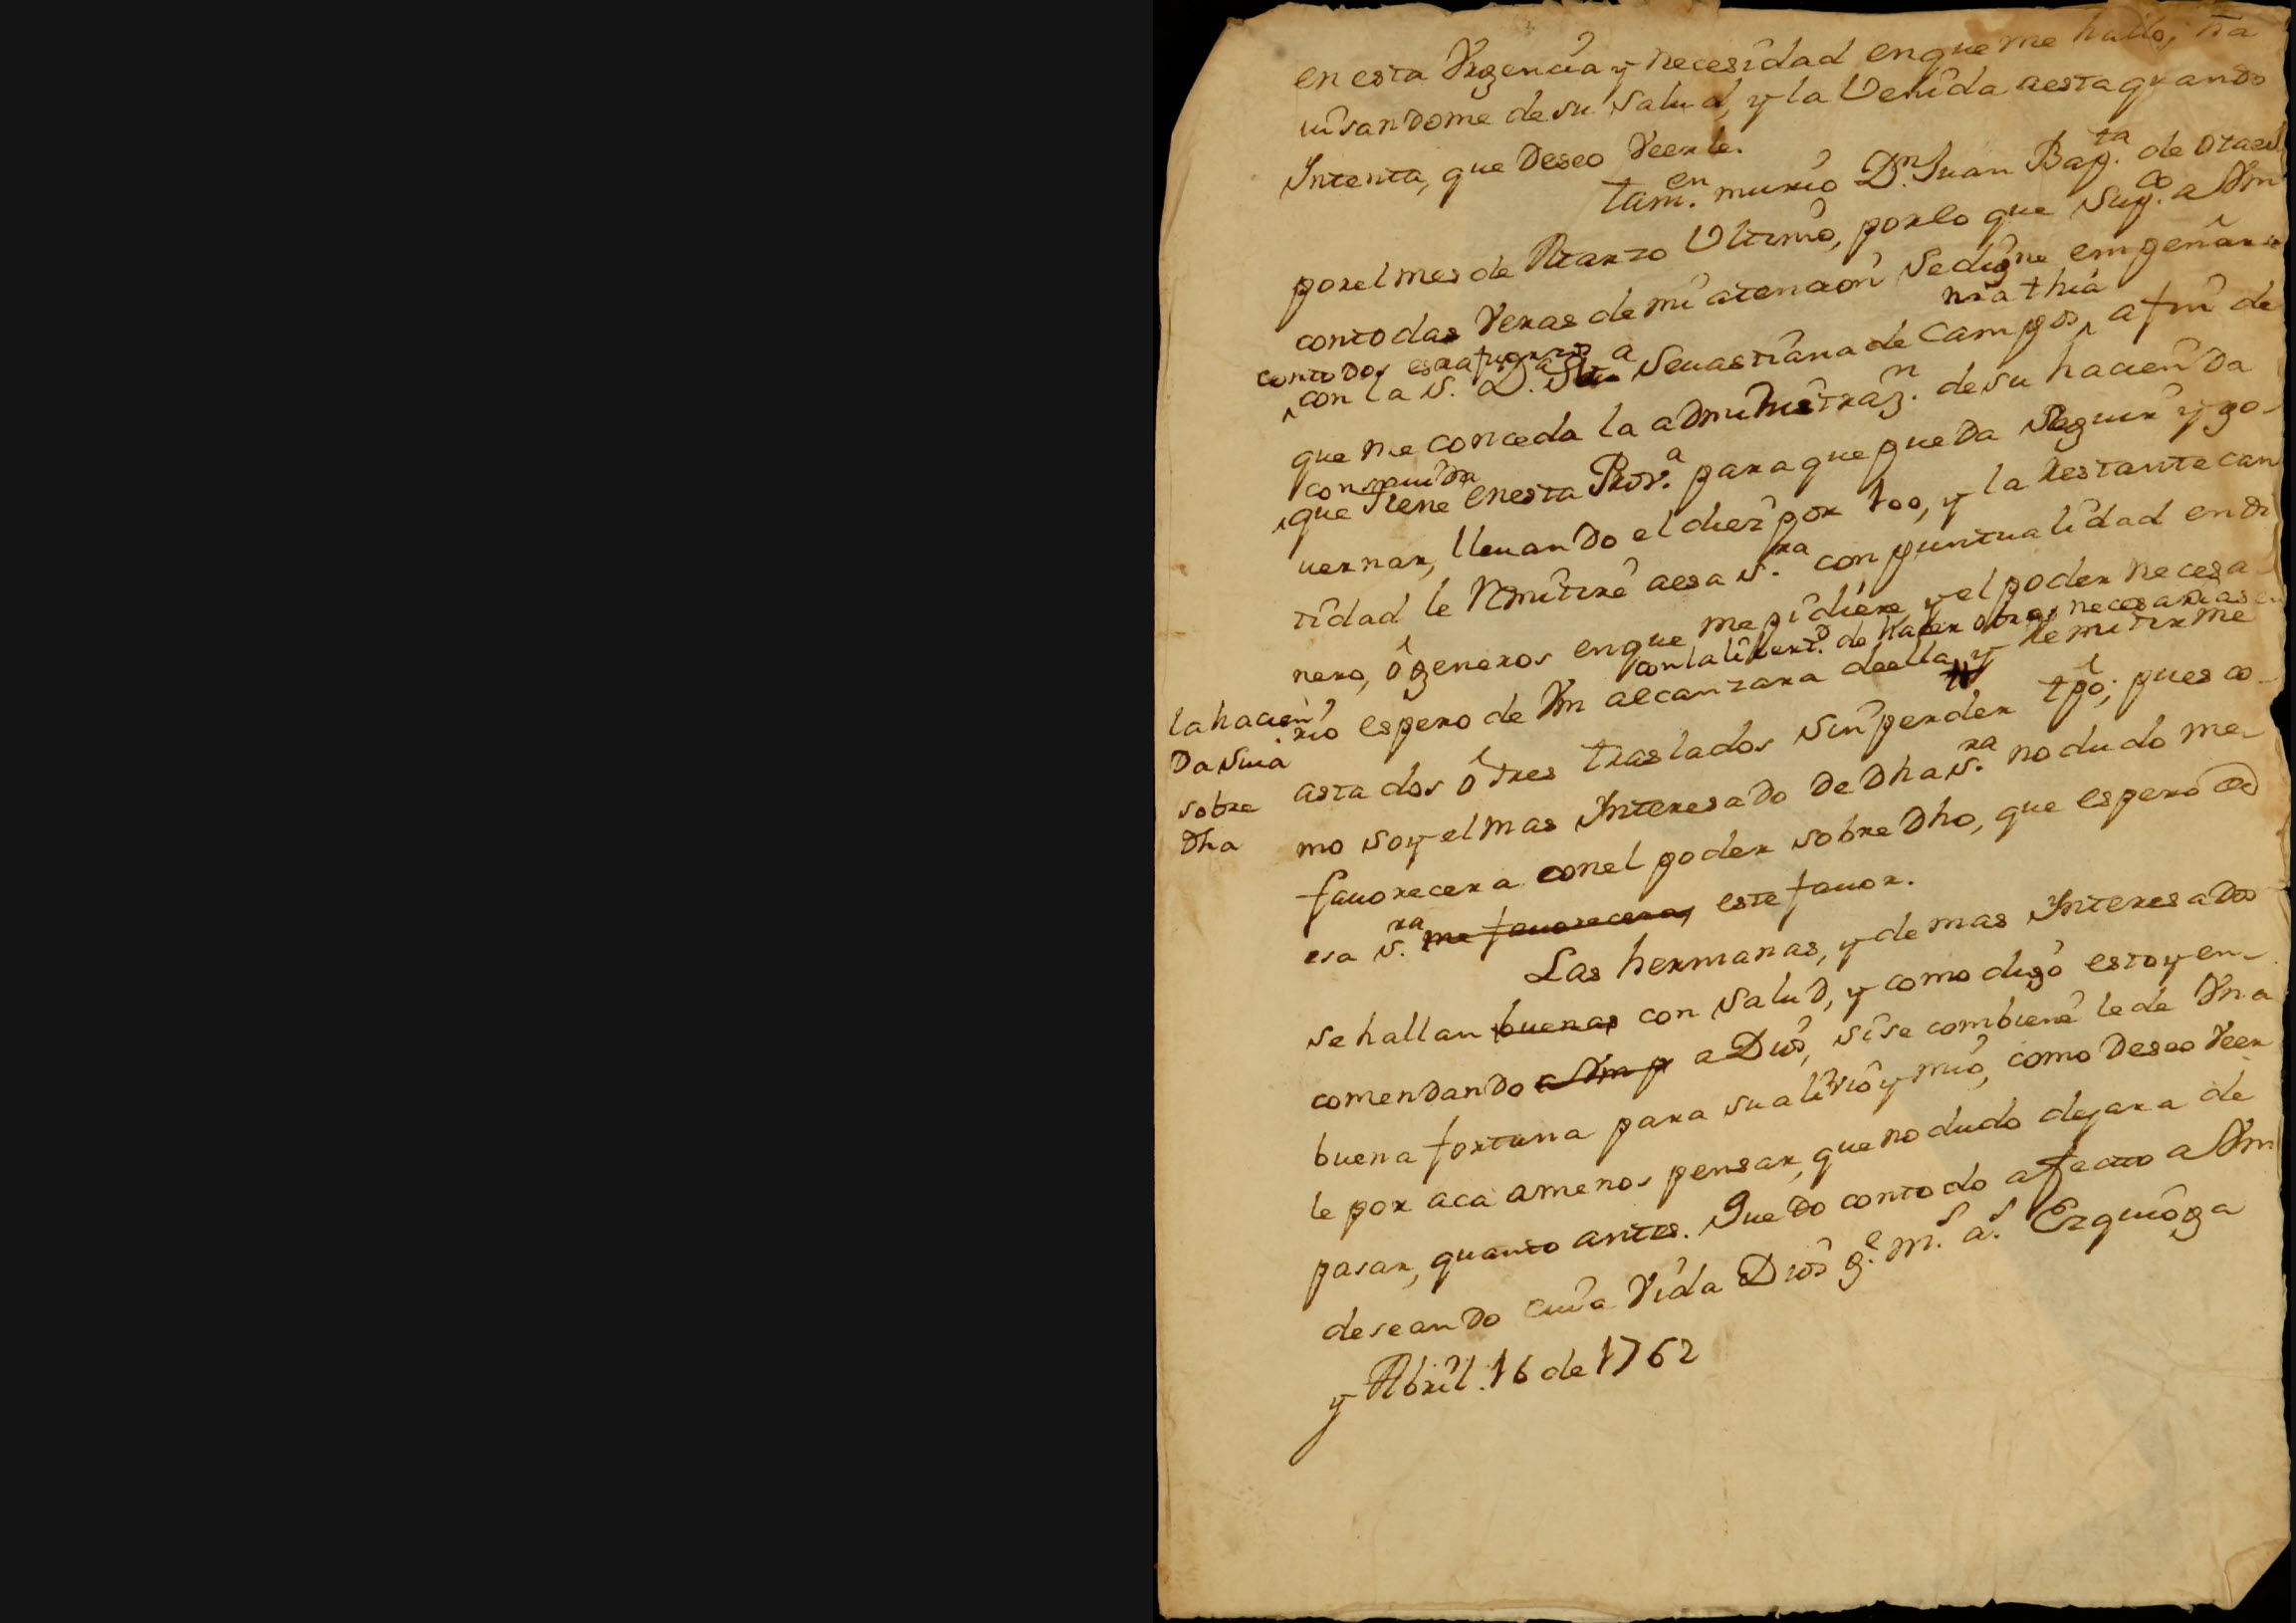 en esta Urgencia y necesidad en que me hallo,
uisandome de su salud, y la Uenida aesta quando
Yntenta, que Deseo Veerle.
tam.en murio D.n Juan Bap.ta de
por el mes de Marzo Ultimo, por lo que Sup.co a Vm
con todas Veras de mi atencion se digne empeñarse
nra thia
con todos esxafuerzos
con la S. D.a Seuastiana de Campos, a fin de
que me conceda la administraz.n de su hacienda
conseguida
que tiene en esta Prov.a para que pueda Seguir y go-
uernar, lleuando el diez por 100, y la restante can
tidad le Remitiré a esa S.ra con puntualidad en di
nero, ó generos en que me pidiere, y el poder necesa-
con la libert.d de hacer obras necesarias en
rio espero de Vm alcanzara de ella, y remitirme
la hacien
da suia
sobre
Dha
asta dos ó tres traslados sin perder tpo; pues co-
mo soy el mas Ynteresado De Dha S.ra no dudo me
fauorecera con el poder sobre Dho, que espero de
esa S.ra me fauorecera, este fauor.
Las hermanas, y demas Ynteresados
se hallan buenas con salud, y como digo estoy en-
comendando a Vm p a Dios, si se combiene le de Vna
buena fortuna para su aliuio y mio, como Deseo Veer
le por aca a menos pensar, que no dudo dejara de
pasar, quanto antes. Quedo con todo afecto a Vm
deseando cuia Vida Dios g.e m.s a.s Ezquioga
y Abril 16 de 1762